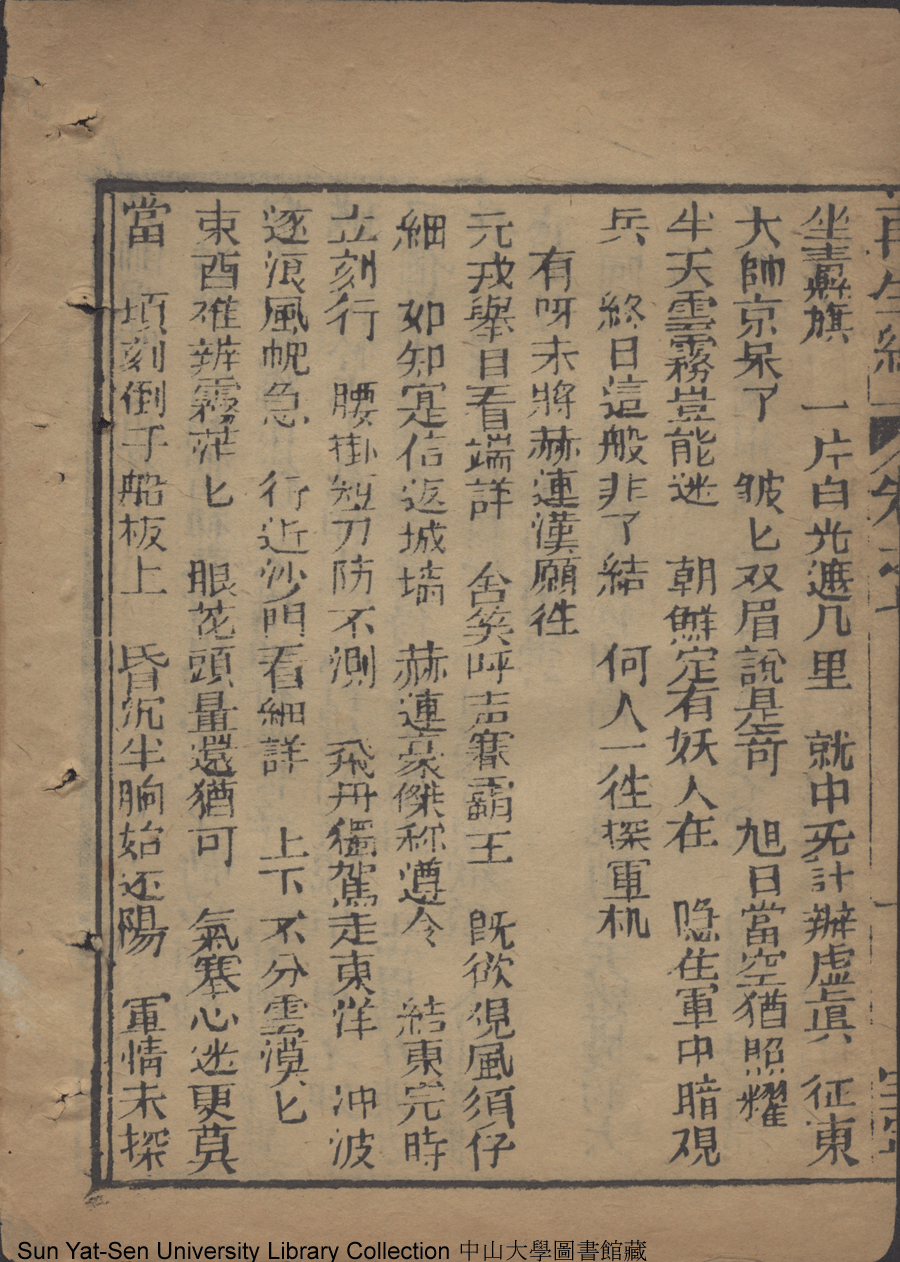 再生緣 卷之十
坐纛旗 一片白光遮几里 就中无計辦虛真 征東
大帥京呆了 皱匕双眉說是奇 旭日當空猶照耀
半天雲霧豈能迷 朝鮮定有妖人在 隐住軍中暗覌
兵 終日這般非了結 何人一徃探軍机
有呀末將赫連漢願徃
元戎舉目看端詳 含笑呼声賽霸王 既欲覌風須仔
細 如知寔信返城墙 赫連豪傑称遵令 結束完時
立刻行 腰掛短刀防不測 飛舟獨駕走東洋 冲波
逐浪風帆急 行近沙門看細詳 上下不分雲漠匕
東西难辨霧茫匕 眼花頭暈還猶可 氣塞心迷更莫
當 頃刻倒于船板上 昏沉半晌始还陽 軍情未探
Sun Yat-Sen University Library Collection 中山大學圖書館藏